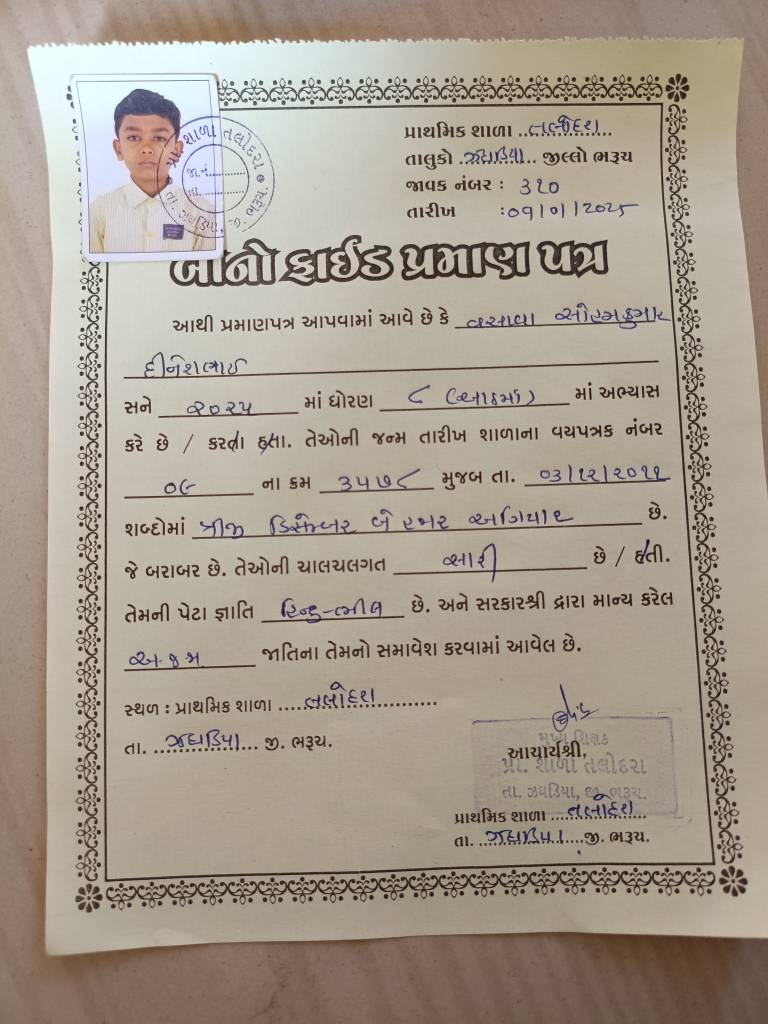 પ્રાથમિક શાળા ..તલોદરા..
તાલુકો .ઝઘડિયા.. જીલ્લો ભરૂચ
જાવક નંબર : ૩૨૦
તારીખ : ૦૧/૦૧/૨૦૨૫
પ્રા. શાળા તલોદરા
જા.નં.
તા.
તા. ઝઘડિયા, જી. ભરૂચ.
બોનોફાઈડ પ્રમાણ પત્ર
આથી પ્રમાણપત્ર આપવામાં આવે છે કે વસાવા સોહમકુમાર
દીનેશભાઈ
સને ૨૦૨૫ માં ધોરણ ૮ (આઠમાં) માં અભ્યાસ
કરે છે / કરતા હતા. તેઓની જન્મ તારીખ શાળાના વયપત્રક નંબર
૦૯ ના ક્રમ ૩૫૭૮ મુજબ તા. ૦૩/૧૨/૨૦૧૧
શબ્દોમાં ત્રીજી ડિસેમ્બર બે હજાર અગિયાર છે.
જે બરાબર છે. તેઓની ચાલચલગત સારી છે / હતી.
તેમની પેટા જ્ઞાતિ હિન્દુ-ભીલ છે. અને સરકારશ્રી દ્રારા માન્ય કરેલ
અ.જ.જા જાતિના તેમનો સમાવેશ કરવામાં આવેલ છે.
સ્થળ : પ્રાથમિક શાળા ....તલોદરા..........
તા. ..ઝઘડિયા... જી. ભરૂચ.
મુખ્ય શિક્ષક
આચાર્યશ્રી,
પ્રા. શાળા તલોદરા
તા. ઝઘડિયા, જી. ભરૂચ.
પ્રાથમિક શાળા ...તલોદરા..
તા. .ઝઘડિયા....જી. ભરૂચ.